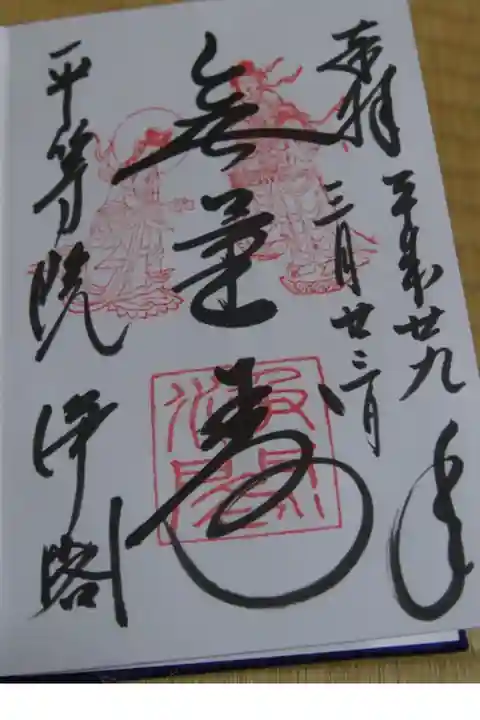 奉拝
平成廿九年
三月廿三日
無量寿
平等院